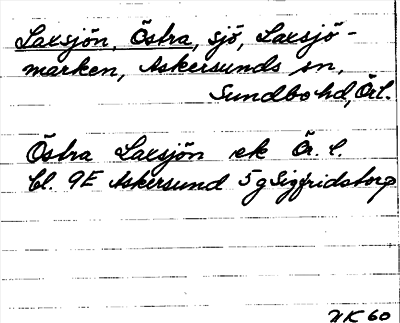 Laxsjön, Östra, sjö, Laxsjö-
marken, Askersunds sn,
Sundbo hd, Örl.
Östra Laxsjön ek Ör. l.
bl. 9E Askersund 5g Sigfridstorp
NK 60